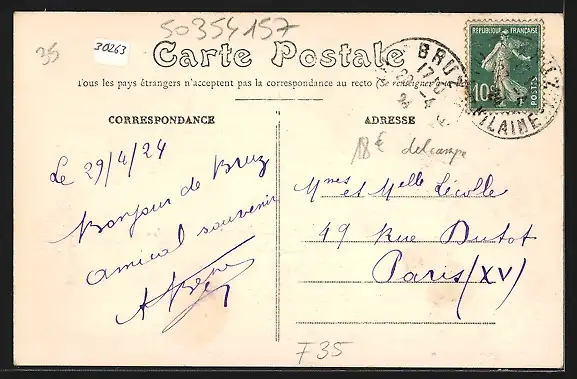 50354157
35
30263
Carte Postale
Tous les pays étrangers n'acceptent pas la correspondance au recto (Se renseigner à la
RÉPUBLIQUE FRANÇAISE
10
POSTES
BRUZ
17
29-4
ILAINE
CORRESPONDANCE
ADRESSE
18€ delcampe
Le 29/4/24
Bonjour de Bruz
amical souvenir
Mmes et Melle Lécolle
49 Rue Dutot
Paris (XV)
F35